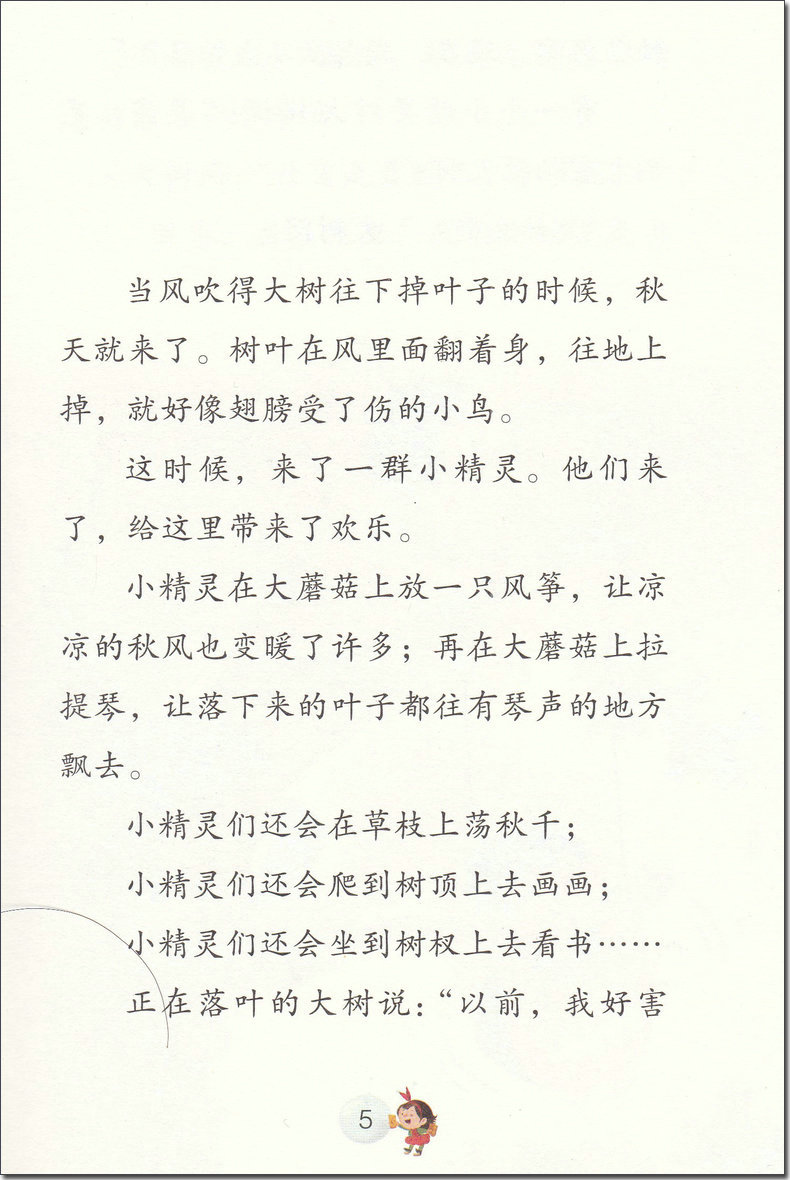 当风吹得大树往下掉叶子的时候，秋
天就来了。树叶在风里面翻着身，往地上
掉，就好像翅膀受了伤的小鸟。
这时候，来了一群小精灵。他们来
了，给这里带来了欢乐。
小精灵在大蘑菇上放一只风筝，让凉
凉的秋风也变暖了许多；再在大蘑菇上拉
提琴，让落下来的叶子都往有琴声的地方
飘去。
小精灵们还会在草枝上荡秋千；
小精灵们还会爬到树顶上去画画；
小精灵们还会坐到树杈上去看书……
正在落叶的大树说：“以前，我好害
5